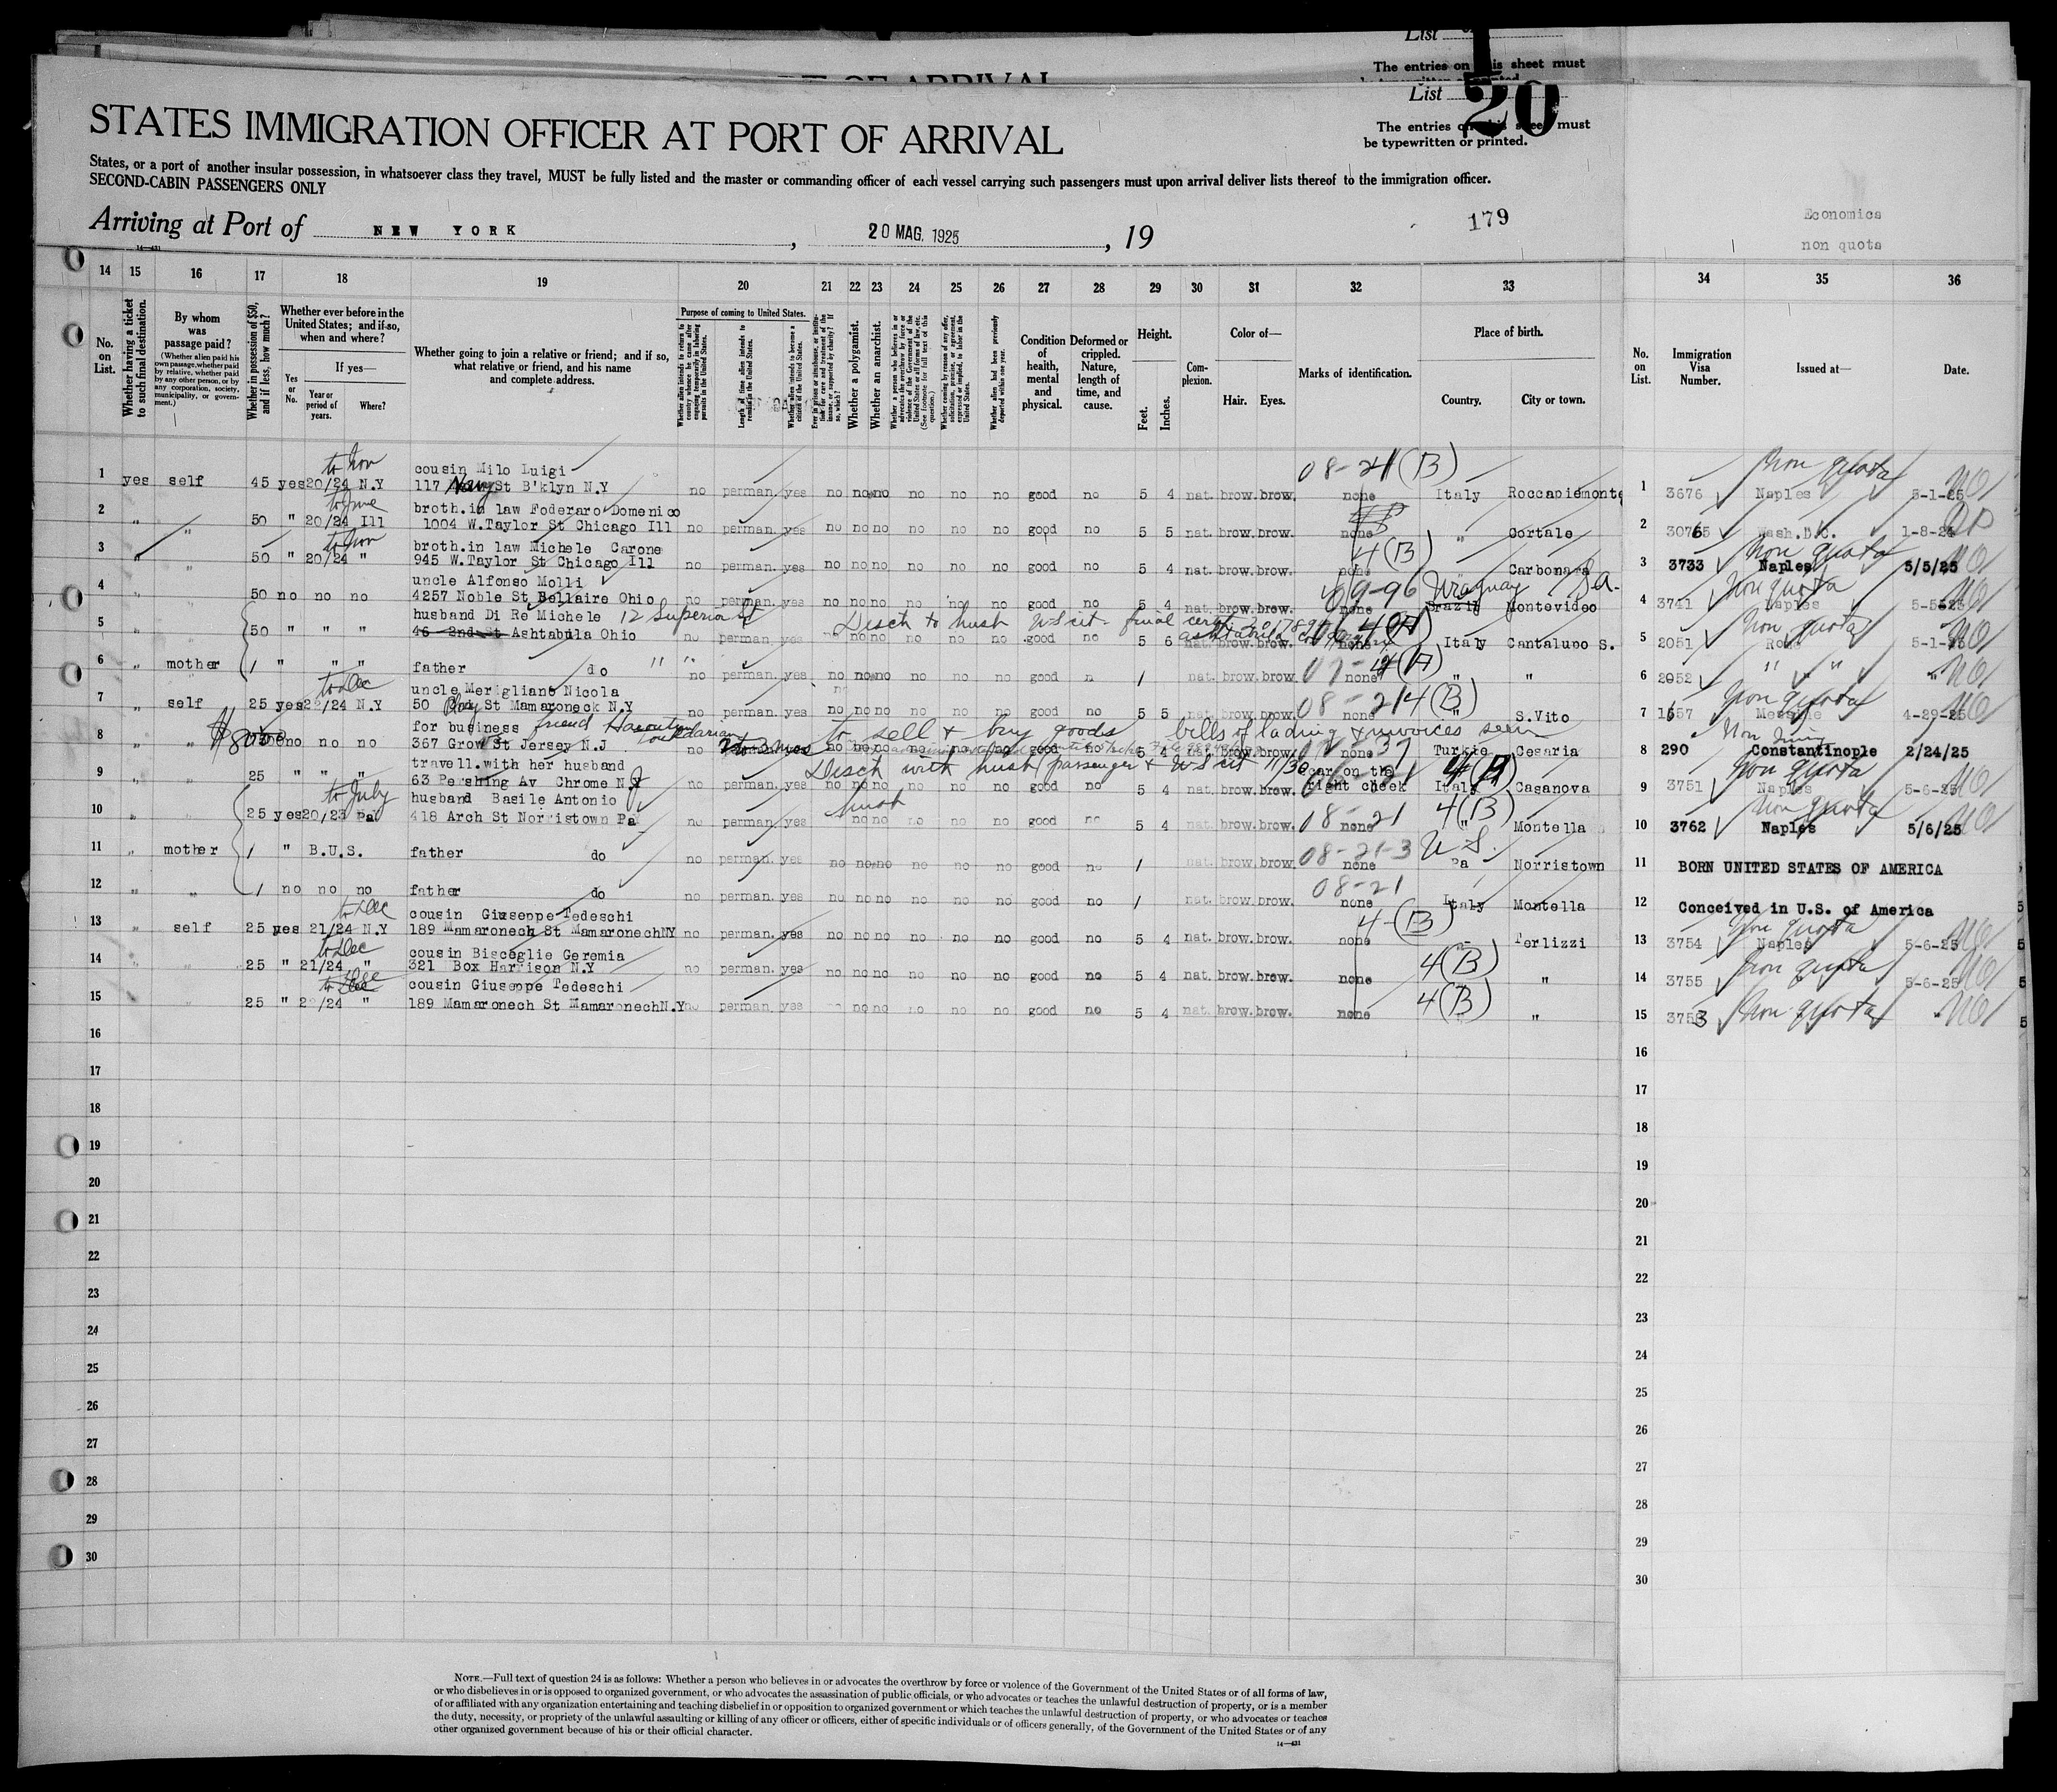 List
The entries on this sheet must
OF ARRIVAL
List 20
The entries on this sheet must
be typewritten or printed.
STATES IMMIGRATION OFFICER AT PORT OF ARRIVAL
States, or a port of another insular possession, in whatsoever class they travel, MUST be fully listed and the master or commanding officer of each vessel carrying such passengers must upon arrival deliver lists thereof to the immigration officer.
SECOND-CABIN PASSENGERS ONLY
Arriving at Port of NEW YORK, 20 MAG. 1925, 19
179
Economics
non quota
14 15 16 17 18 19 20 21 22 23 24 25 26 27 28 29 30 31 32 33 34 35 36
No. on List.
Whether having a ticket to such final destination.
By whom was passage paid?
(Whether alien paid his own passage, whether paid by relative, whether paid by any other person, or by any corporation, society, municipality, or government.)
Whether in possession of $50, and if less, how much?
Whether ever before in the United States; and if so, when and where?
If yes—
Yes or No.
Year or period of years.
Where?
Whether going to join a relative or friend; and if so, what relative or friend, and his name and complete address.
Purpose of coming to United States.
Whether alien intends to return to country whence he came after engaging temporarily in laboring pursuits in the United States.
Length of time alien intends to remain in the United States.
Whether alien intends to become a citizen of the United States.
Whether a polygamist.
Whether an anarchist.
Condition of health, mental and physical.
Deformed or crippled. Nature, length of time, and cause.
Height.
Feet. Inches.
Complexion.
Color of—
Hair. Eyes.
Marks of identification.
Place of birth.
Country. City or town.
No. on List.
Immigration Visa Number.
Issued at—
Date.
to Nov
1 yes self 45 yes 20/24 N.Y cousin Milo Luigi
117 Navy St B'klyn N.Y no perman. yes no no no no no no good no 5 4 nat. brow. brow. none Italy Roccapiemonte 1 3676 Naples 5-1-25
08-21 (B) Non quota
2 " " 50 " 20/24 Ill broth.in law Foderaro Domenico
1004 W.Taylor St Chicago Ill no perman. yes no no no no no no good no 5 5 nat. brow. brow. none " Cortale 2 30765 Wash.D.C.
to Nov
3 " " 50 " 20/24 " broth.in law Michele Carone
945 W.Taylor St Chicago Ill no perman. yes no no no no no no good no 5 4 nat. brow. brow. none Carbonara 3 3733 Naples 5/5/25
4(B) Non quota
4 " " 50 no no no uncle Alfonso Molli
4257 Noble St Bellaire Ohio no perman. yes no no no no no no good no 5 4 nat. brow. brow. none Brazil Montevideo 4 3741 Naples
Uruguay S.A. Non quota
5 " 50 " " " husband Di Re Michele 12 Superior St
46 2nd St Ashtabula Ohio no perman. yes no no no no no no good no 5 6 nat. brow. brow. none Italy Cantalupo S. 5 2051 Rome
Disch to husb US cit - final cert Non quota
6 " mother 1 " " " father do " " no perman. yes no no no no no no good 1 nat. brow. brow. none " " 6 2052 " "
to Dec
7 " self 25 yes 22/24 N.Y uncle Merigliano Nicola
50 St Mamaroneck N.Y no perman. yes no no no no no no good no 5 5 nat. brow. brow. none " S.Vito 7 4-29-25
08-214 (B) Non quota
8 " " no no no for business friend
367 Grow St Jersey N.J no no no no no no no good no 5 4 nat. brow. brow. none Turkie Cesaria 8 290 Constantinople 2/24/25
to sell & buy goods bills of lading & invoices seen
9 " " 25 " " " travell.with her husband
63 Pershing Av Chrome N.J no perman. yes no no no no no no good no 5 4 nat. brow. brow. scar on the right cheek Italy Casanova 9 3751 Naples 5-6-25
Disch with husb passenger & US cit Non quota
to July
10 " " 25 yes 20/23 Pa husband Basile Antonio
418 Arch St Norristown Pa no perman. yes no no no no no good no 5 4 nat. brow. brow. none " Montella 10 3762 Naples 5/6/25
husb 08-21 4(B) Non quota
11 " mother 1 " B.U.S. father do no perman. yes no no no no no no good no 1 nat. brow. brow. none Pa Norristown 11 BORN UNITED STATES OF AMERICA
08-21-3 U.S.
12 " " 1 no no no father do no perman. yes no no no no no no good no 1 nat. brow. brow. none Italy Montella 12 Conceived in U.S. of America
08-21
to Dec
13 " self 25 yes 21/24 N.Y cousin Giuseppe Tedeschi
189 Mamaronech St MamaronechNY no perman. yes no no no no no no good no 5 4 nat. brow. brow. none " Terlizzi 13 3754 Naples 5-6-25
4(B) Non quota
to Dec
14 25 " 21/24 " cousin Bisceglie Geremia
321 Box Harrison N.Y no perman. yes no no no no no no good no 5 4 nat. brow. brow. none " 14 3755 5-6-25
4(B) Non quota
to Dec
15 25 " 22/24 " cousin Giuseppe Tedeschi
189 Mamaronech St MamaronechN.Y no perman. yes no no no no no good no 5 4 nat. brow. brow. none " 15 3753
4(B) Non quota
16 16
17 17
18 18
19 19
20 20
21 21
22 22
23 23
24 24
25 25
26 26
27 27
28 28
29 29
30 30
NOTE.—Full text of question 24 is as follows: Whether a person who believes in or advocates the overthrow by force or violence of the Government of the United States or of all forms of law,
or who disbelieves in or is opposed to organized government, or who advocates the assassination of public officials, or who advocates or teaches the unlawful destruction of property, or is a member
of or affiliated with any organization entertaining and teaching disbelief in or opposition to organized government or which teaches the unlawful destruction of property, or who advocates or teaches
the duty, necessity, or propriety of the unlawful assaulting or killing of any officer or officers, either of specific individuals or of officers generally, of the Government of the United States or of any
other organized government because of his or their official character.
14—431